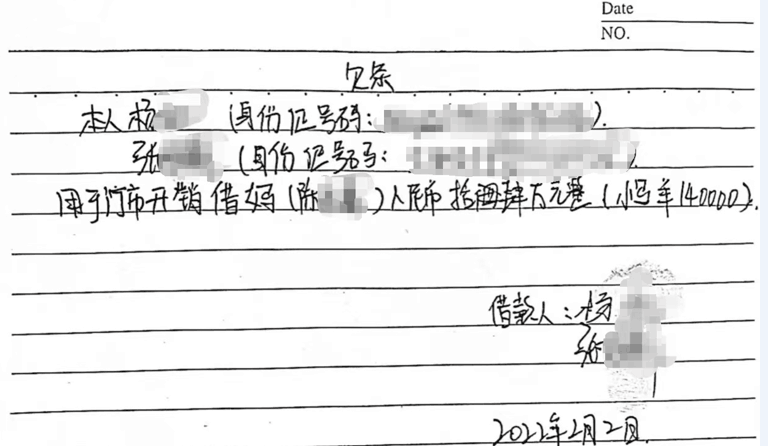 Date
NO.
欠条
本人杨 (身份证号码: ).
张 (身份证号码: )
用于门市开销借妈(陈 )人民币拾肆万元整(小写¥140000).
借款人:杨
张
2022年2月2日